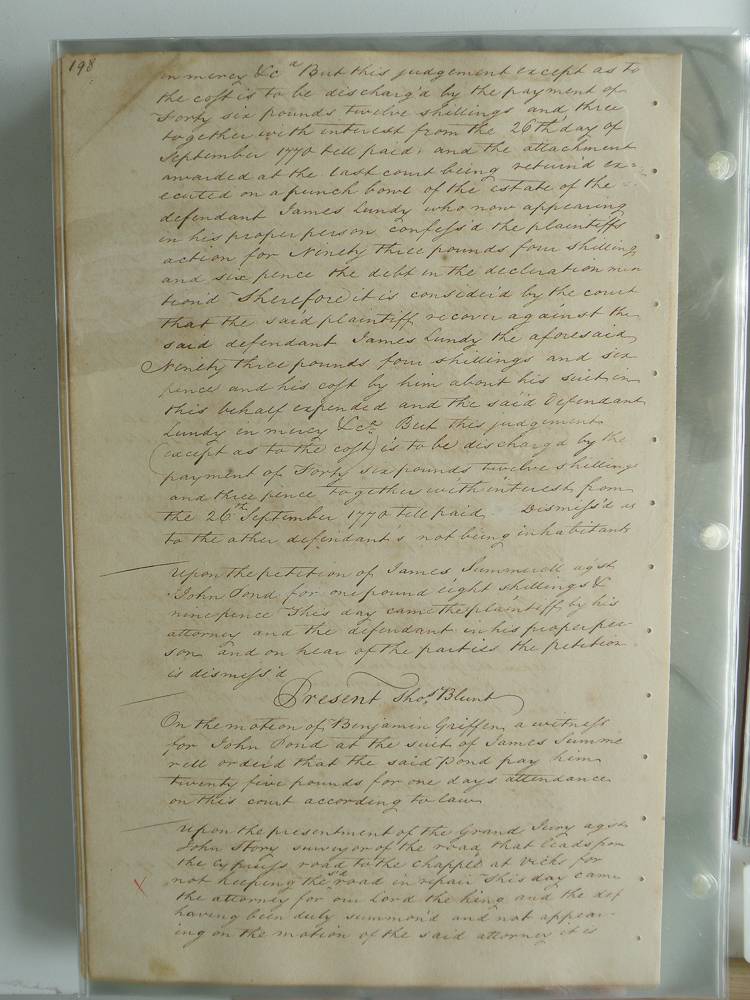 198
in mercy &c a But this judgement except as to
the cost is to be discharg'd by the payment of
Forty six pounds twelve shillings and three
together with interest from the 26th day of
September 1770 till paid, and the attachment
awarded at the last court being return'd ex=
ecuted on a punch bowl of the estate of the
defendant James Lundy who now appearing
in his proper person confess'd the plaintiffs
action for Ninety three pounds four shilling
and six pence the debt in the decleration men
tion'd Therefore it is consider'd by the court
that the said plaintiff recover against the
said defendant James Lundy the aforesaid
Ninety three pounds four shillings and six
pence and his cost by him about his suit in
this behalf expended and the said Defendant
Lundy in mercy &ca But this judgement
(except as to the cost) is to be discharg'd by the
payment of Forty six pounds twelve shillings
and three pence together with interest from
the 26th September 1770 till paid Dismiss'd as
to the other defendants not being inhabitants
Upon the petition of James Summerell agst
John Pond for one pound eight shillings &
nine pence This day came the plaintiff by his
attorney and the defendant in his proper per
son and on hear of the parties the petition
is dismiss'd
Present Thos Blunt
On the motion of Benjamin Griffen a witness
for John Pond at the suit of James Summe
rell order'd that the said Pond pay him
twenty five pounds for one days attendance
on this court according to law
Upon the presentment of the Grand Jury agst
John Story surveyor of the road that leads from
the Cypress road to the chapple at Vicks for
not keeping the sd road in repair This day came
the attorney for our Lord the King and the def
having been duly summon'd and not appear-
ing on the motion of the said attorney it is